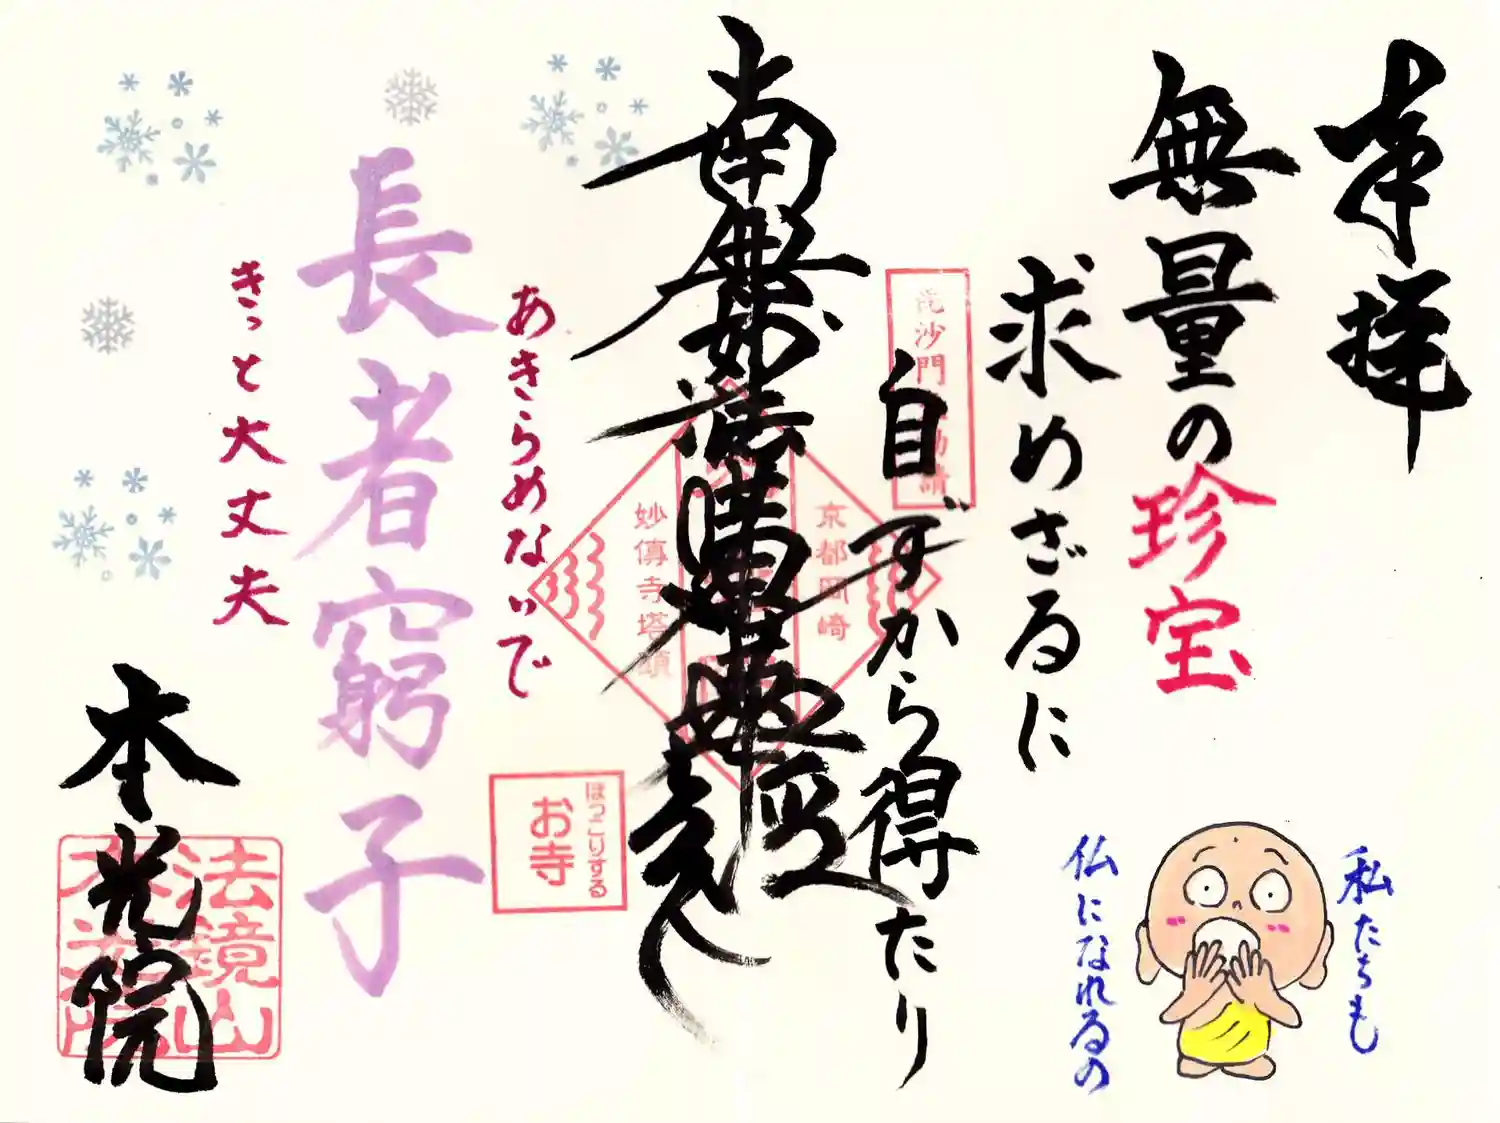 奉拝
無量の珍宝
求めざるに
自ずから得たり
南無妙法蓮華経
あきらめないで
長者窮子
きっと大丈夫
本光院
私たちも
仏になれるの
毘沙門
京都岡崎
妙傳寺塔頭
ほっこりする
お寺
法鏡山
本光院